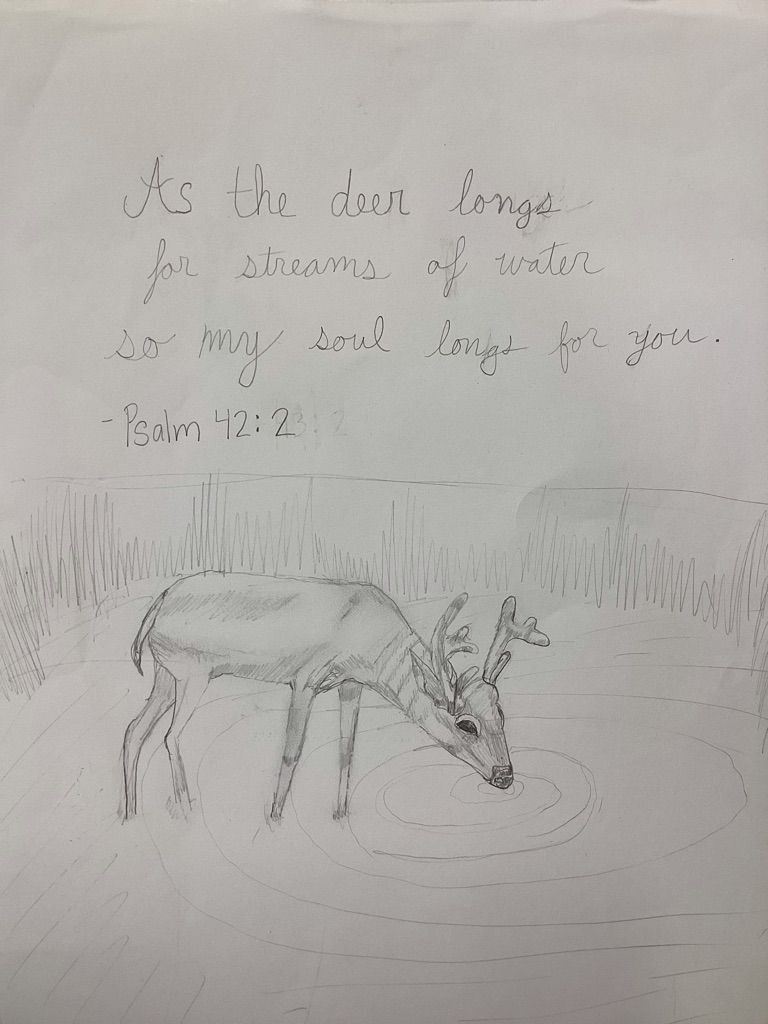 As the deer longs
for streams of water
so my soul longs for you.
- Psalm 42:2